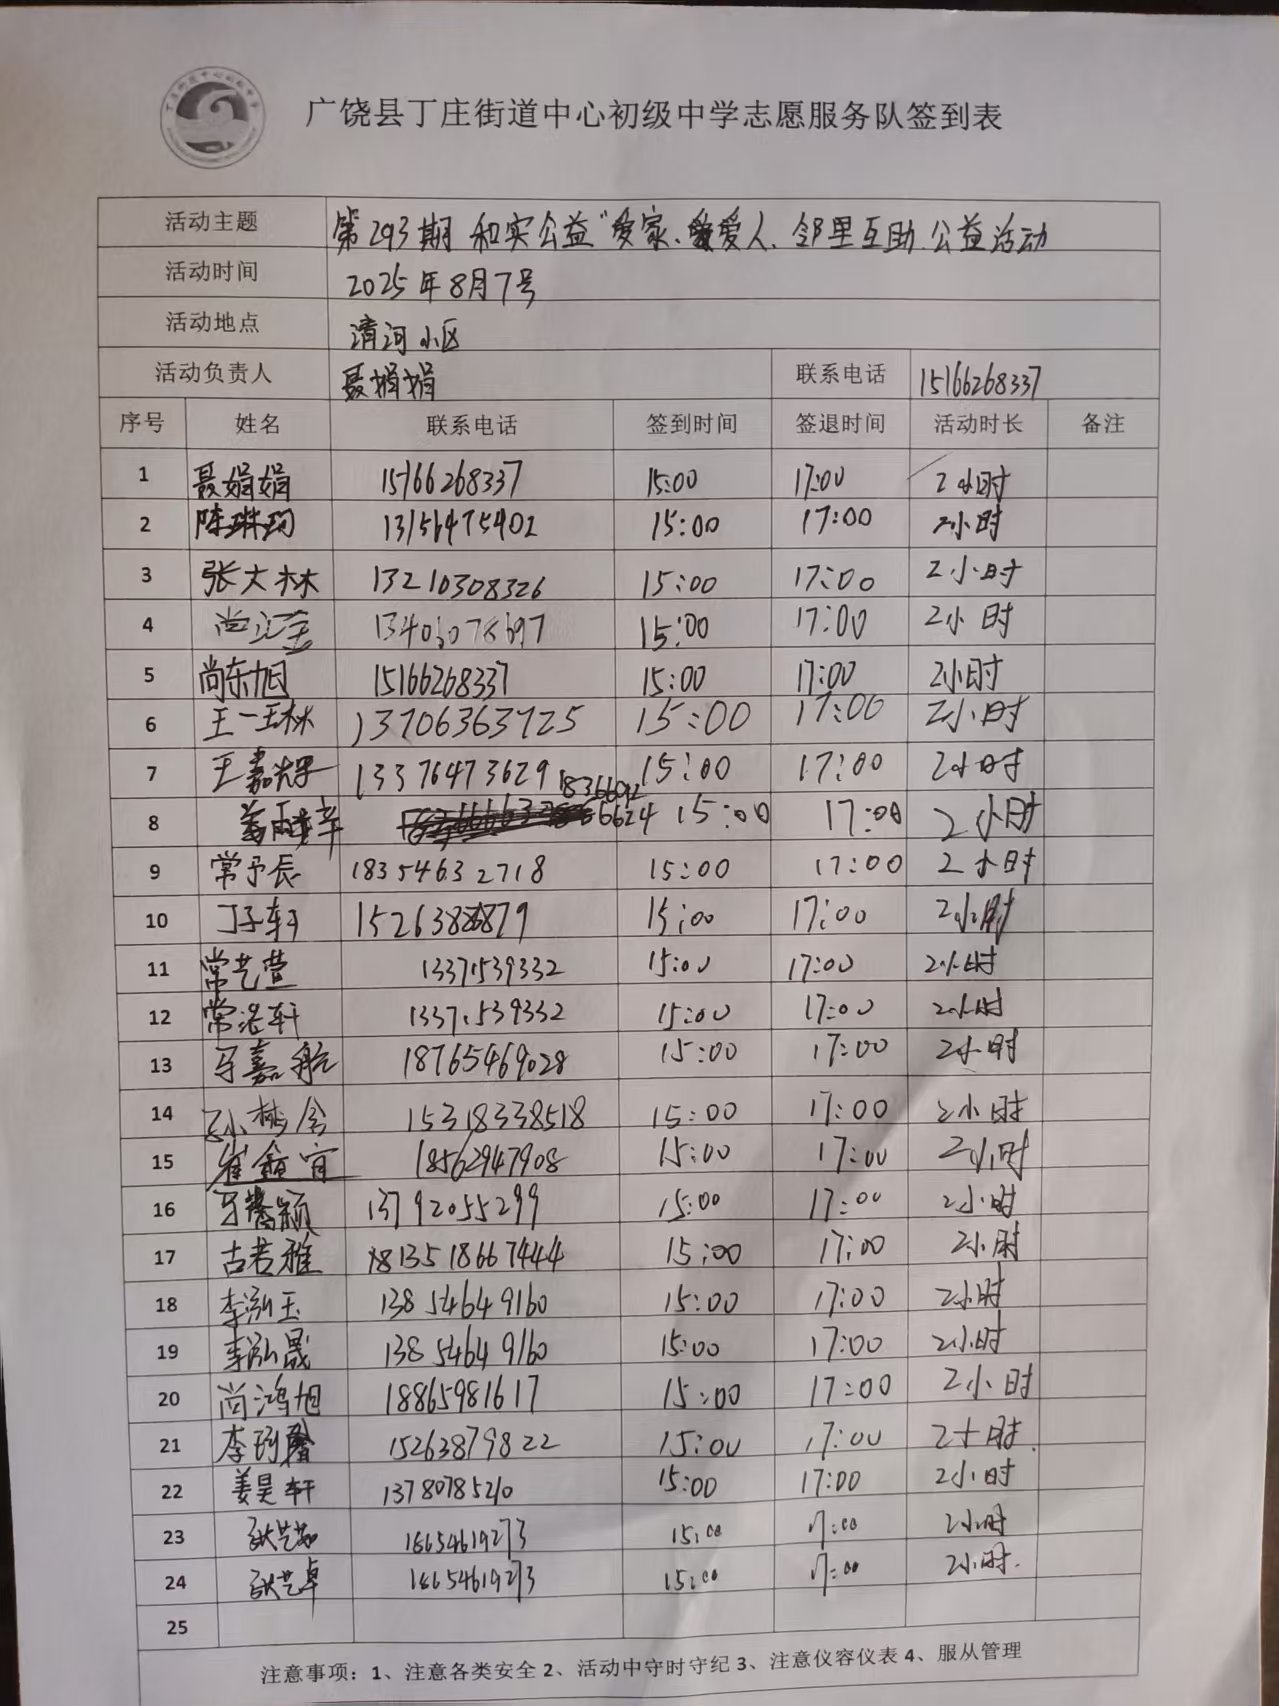 广饶县丁庄街道中心初级中学志愿服务队签到表
活动主题 第293期 和实公益"爱家、爱人、邻里互助、公益活动
活动时间 2025年8月7号
活动地点 清河小区
活动负责人 聂娟娟 联系电话 15166268337
序号 姓名 联系电话 签到时间 签退时间 活动时长 备注
1 聂娟娟 15166268337 15:00 17:00 2小时
2 陈琳珂 13156475402 15:00 17:00 2小时
3 张大林 13210308326 15:00 17:00 2小时
4 15:00 17:00 2小时
5 尚东旭 15166268337 15:00 17:00 2小时
6 王一林 13706363725 15:00 17:00 2小时
7 王嘉 13376473629 15:00 17:00 2小时
8 15:00 17:00 2小时
9 常予辰 18354632718 15:00 17:00 2小时
10 丁子轩 15:00 17:00 2小时
11 常艺萱 1337.539332 15:00 17:00 2小时
12 常浩轩 1337.539332 15:00 17:00 2小时
13 牙嘉航 18765469028 15:00 17:00 2小时
14 15318338518 15:00 17:00 2小时
15 崔鑫宜 18562947908 15:00 17:00 2小时
16 13792055299 15:00 17:00 2小时
17 古若雅 15:00 17:00 2小时
18 李泓玉 13854649160 15:00 17:00 2小时
19 李泓晟 13854649160 15:00 17:00 2小时
20 尚鸿旭 18865981617 15:00 17:00 2小时
21 李 15263879822 15:00 17:00 2小时.
22 姜昊轩 1378078520 15:00 17:00 2小时
23 15:00 17:00 2小时
24 15:00 17:00 2小时.
25
注意事项：1、注意各类安全 2、活动中守时守纪 3、注意仪容仪表 4、服从管理